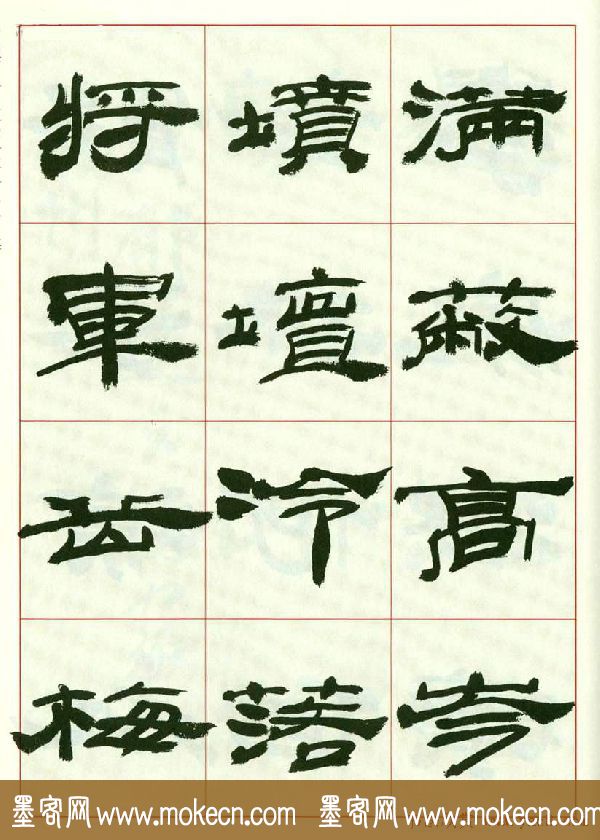 滿蔽高岑
墳壇冷落
將軍岳梅
墨客网 www.mokecn.com 墨客网 www.mokecn.com